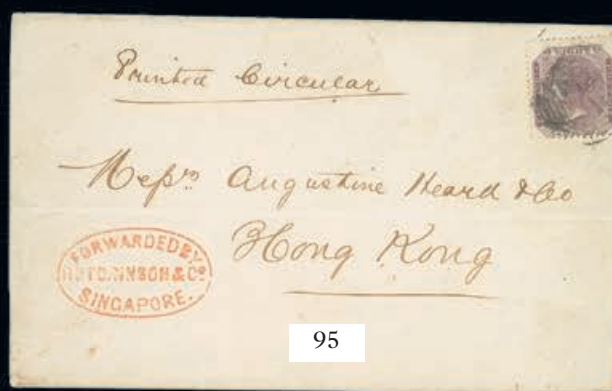 Printed Circular
Messrs Augustine Heard & Co
Hong Kong
FORWARDED BY
& Co
SINGAPORE.
95